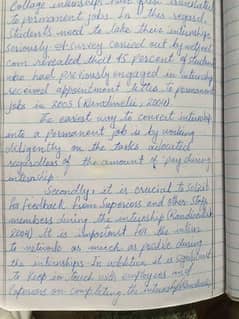 College internships have been associated
to permanent jobs. In this regard,
Students need to take these internships
seriously. A survey carried out by
com revealed that 45 percent of students
who had previously engaged in internship
received appointment letters to permanent
jobs in 2003 (Kandimelu, 2004).
The easiest way to convert internship
into a permanent job is by working
diligently on the tasks allocated
regardless of the amount of pay during
internship.
Secondly, it is crucial to solicit
for Feedback from Supervisors and other Staff
members during the internship
2004) It is important for the intern
to network as much as possible during
the internships. In addition it is significant
to keep in touch with employees and
on completing the internship